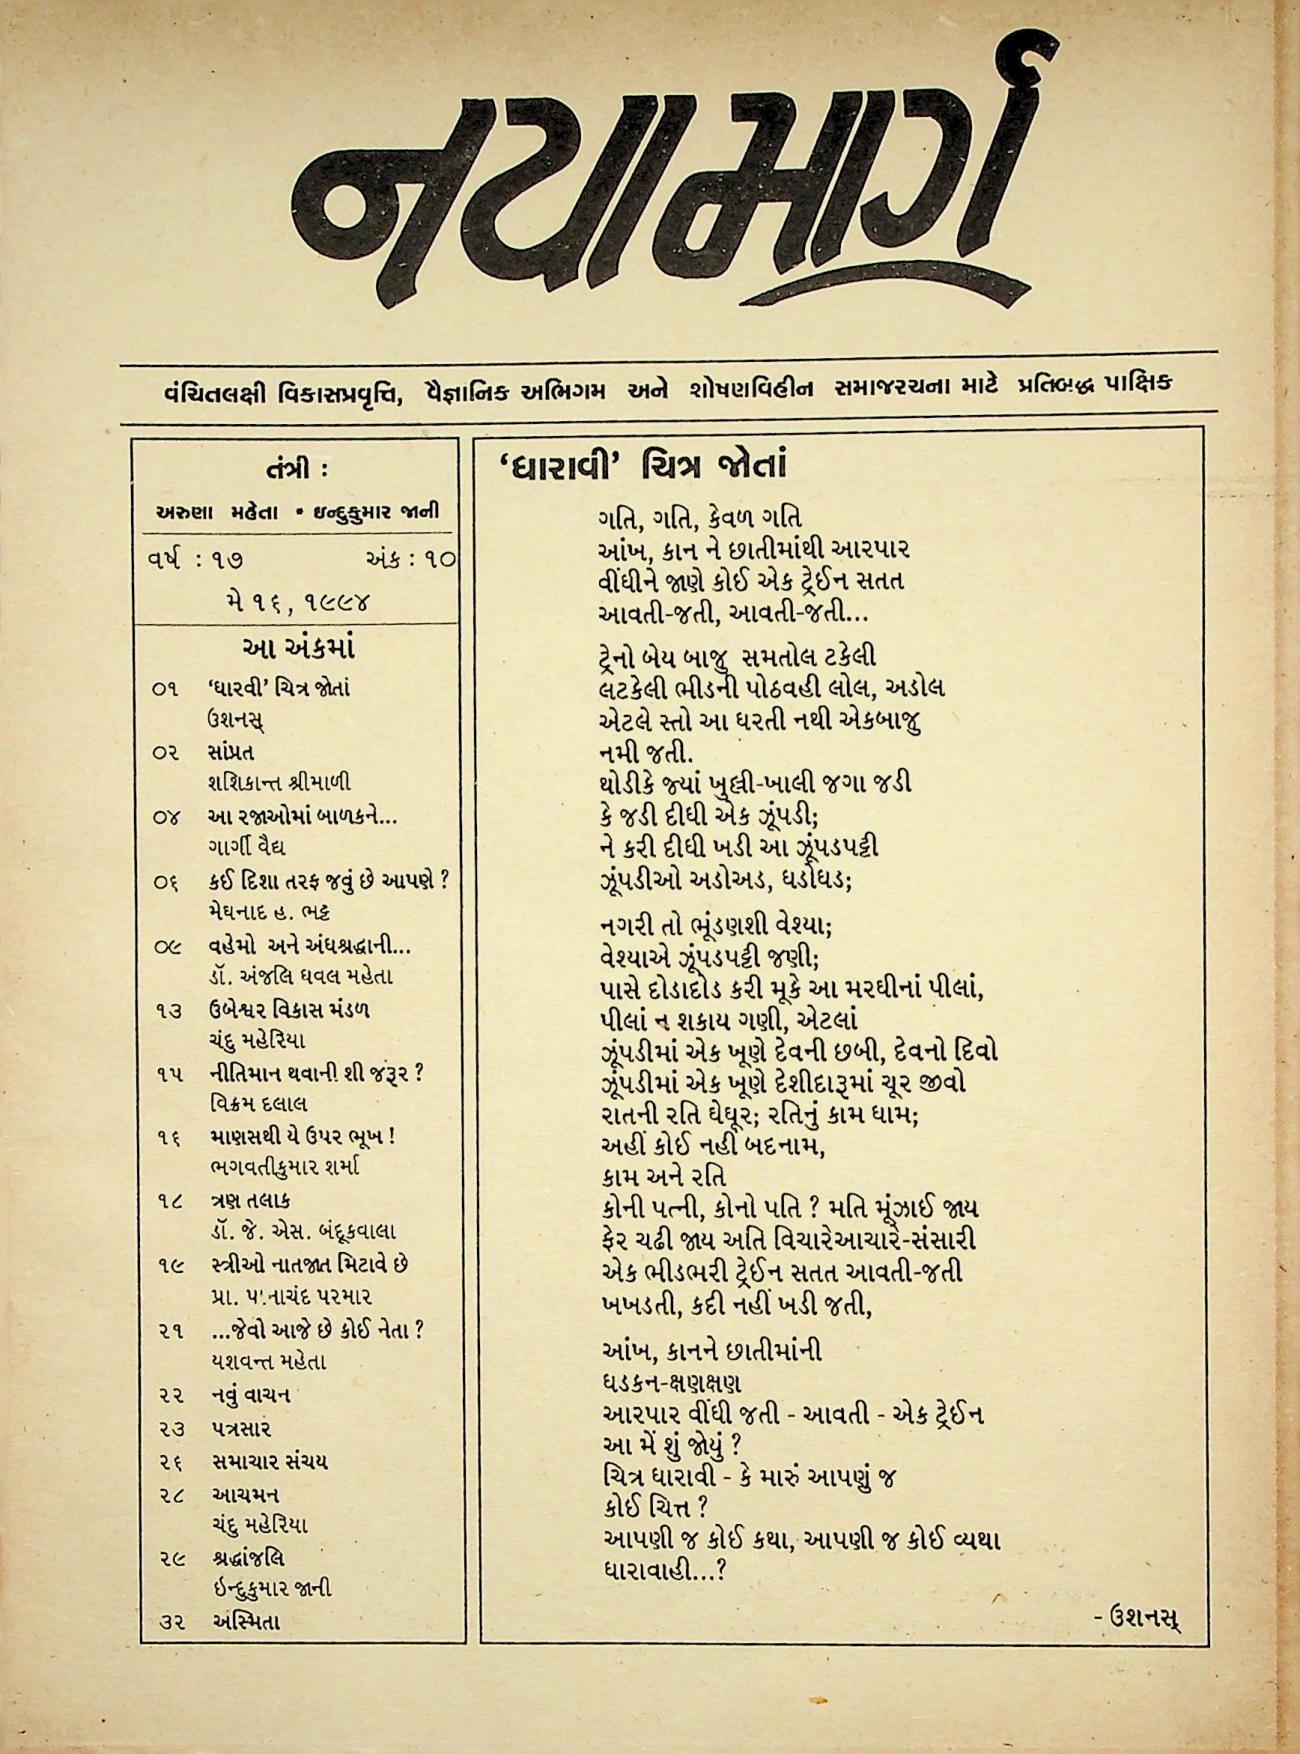 નયામાર્ગ
વંચિતલક્ષી વિકાસપ્રવૃત્તિ, વૈજ્ઞાનિક અભિગમ અને શોષણવિહીન સમાજરચના માટે પ્રતિબદ્ધ પાક્ષિક
તંત્રી :
અરુણા મહેતા • ઇન્દુકુમાર જાની
વર્ષ : ૧૭ અંક : ૧૦
મે ૧૬, ૧૯૯૪
આ અંકમાં
૦૧ ‘ધારવી’ ચિત્ર જોતાં
ઉશનસ્
૦૨ સાંપ્રત
શશિકાન્ત શ્રીમાળી
૦૪ આ રજાઓમાં બાળકને...
ગાર્ગી વૈદ્ય
૦૬ કઈ દિશા તરફ જવું છે આપણે ?
મેઘનાદ હ. ભટ્ટ
૦૯ વહેમો અને અંધશ્રદ્ધાની...
ડૉ. અંજલિ ધવલ મહેતા
૧૩ ઉબેશ્વર વિકાસ મંડળ
ચંદુ મહેરિયા
૧૫ નીતિમાન થવાની શી જરૂર ?
વિક્રમ દલાલ
૧૬ માણસથી યે ઉપર ભૂખ !
ભગવતીકુમાર શર્મા
૧૮ ત્રણ તલાક
ડૉ. જે. એસ. બંદૂકવાલા
૧૯ સ્ત્રીઓ નાતજાત મિટાવે છે
પ્રા. પાનાચંદ પરમાર
૨૧ ...જેવો આજે છે કોઈ નેતા ?
યશવન્ત મહેતા
૨૨ નવું વાચન
૨૩ પત્રસાર
૨૬ સમાચાર સંચય
૨૮ આચમન
ચંદુ મહેરિયા
૨૯ શ્રદ્ધાંજલિ
ઇન્દુકુમાર જાની
૩૨ અસ્મિતા
‘ધારાવી’ ચિત્ર જોતાં
ગતિ, ગતિ, કેવળ ગતિ
આંખ, કાન ને છાતીમાંથી આરપાર
વીંધીને જાણે કોઈ એક ટ્રેઈન સતત
આવતી-જતી, આવતી-જતી...
ટ્રેનો બેય બાજુ સમતોલ ટકેલી
લટકેલી ભીડની પોઠવહી લોલ, અડોલ
એટલે સ્તો આ ધરતી નથી એકબાજુ
નમી જતી.
થોડીકે જ્યાં ખુલ્લી-ખાલી જગા જડી
કે જડી દીધી એક ઝૂંપડી;
ને કરી દીધી ખડી આ ઝૂંપડપટ્ટી
ઝૂંપડીઓ અડોઅડ, ધડોધડ;
નગરી તો ભૂંડણશી વેશ્યા;
વેશ્યાએ ઝૂંપડપટ્ટી જણી;
પાસે દોડાદોડ કરી મૂકે આ મરઘીનાં પીલાં,
પીલાં ન શકાય ગણી, એટલાં
ઝૂંપડીમાં એક ખૂણે દેવની છબી, દેવનો દિવો
ઝૂંપડીમાં એક ખૂણે દેશીદારૂમાં ચૂર જીવો
રાતની રતિ ઘેઘૂર; રતિનું કામ ધામ;
અહીં કોઈ નહીં બદનામ,
કામ અને રતિ
કોની પત્ની, કોનો પતિ ? મતિ મૂંઝાઈ જાય
ફેર ચઢી જાય અતિ વિચારેઆચારે-સંસારી
એક ભીડભરી ટ્રેઈન સતત આવતી-જતી
ખખડતી, કદી નહીં ખડી જતી,
આંખ, કાનને છાતીમાંની
ધડકન-ક્ષણક્ષણ
આરપાર વીંધી જતી - આવતી - એક ટ્રેઈન
આ મેં શું જોયું ?
ચિત્ર ધારાવી - કે મારું આપણું જ
કોઈ ચિત્ત ?
આપણી જ કોઈ કથા, આપણી જ કોઈ વ્યથા
ધારાવાહી...?
- ઉશનસ્